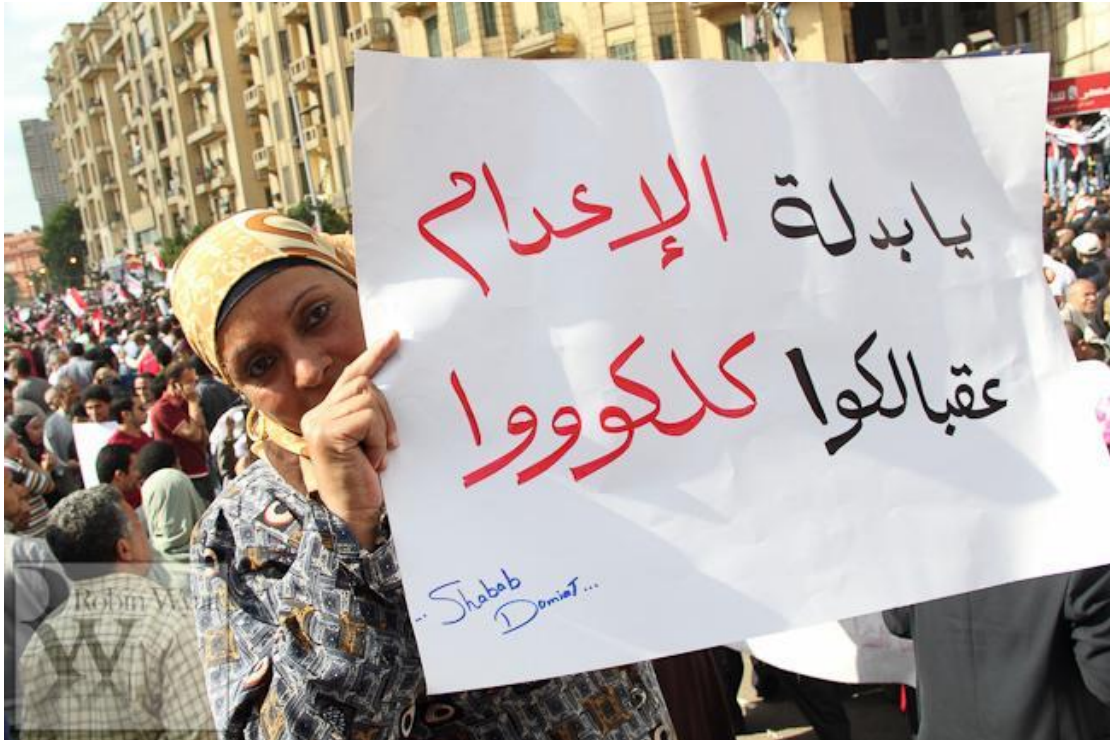 يا بدلة الإعدام
عقبالكوا كلكوووا
... Shabab
Domiat ...
Robin W